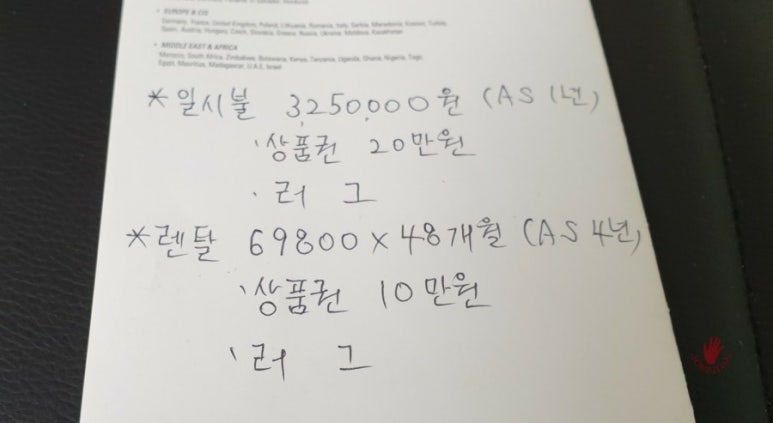 • EUROPE & CIS
Germany, France, United Kingdom, Poland, Lithuania, Romania, Italy, Serbia, Macedonia, Kosovo, Turkey,
Spain, Austria, Hungary, Czech, Slovakia, Greece, Russia, Ukraine, Moldova, Kazakhstan
• MIDDLE EAST & AFRICA
Morocco, South Africa, Zimbabwe, Botswana, Kenya, Tanzania, Uganda, Ghana, Nigeria, Togo,
Egypt, Mauritius, Madagascar, U.A.E, Israel
*일시불 3,250,000원 (AS 1년)
·상품권 20만원
·러그
*렌탈 69800×48개월 (AS 4년)
·상품권 10만원
·러그